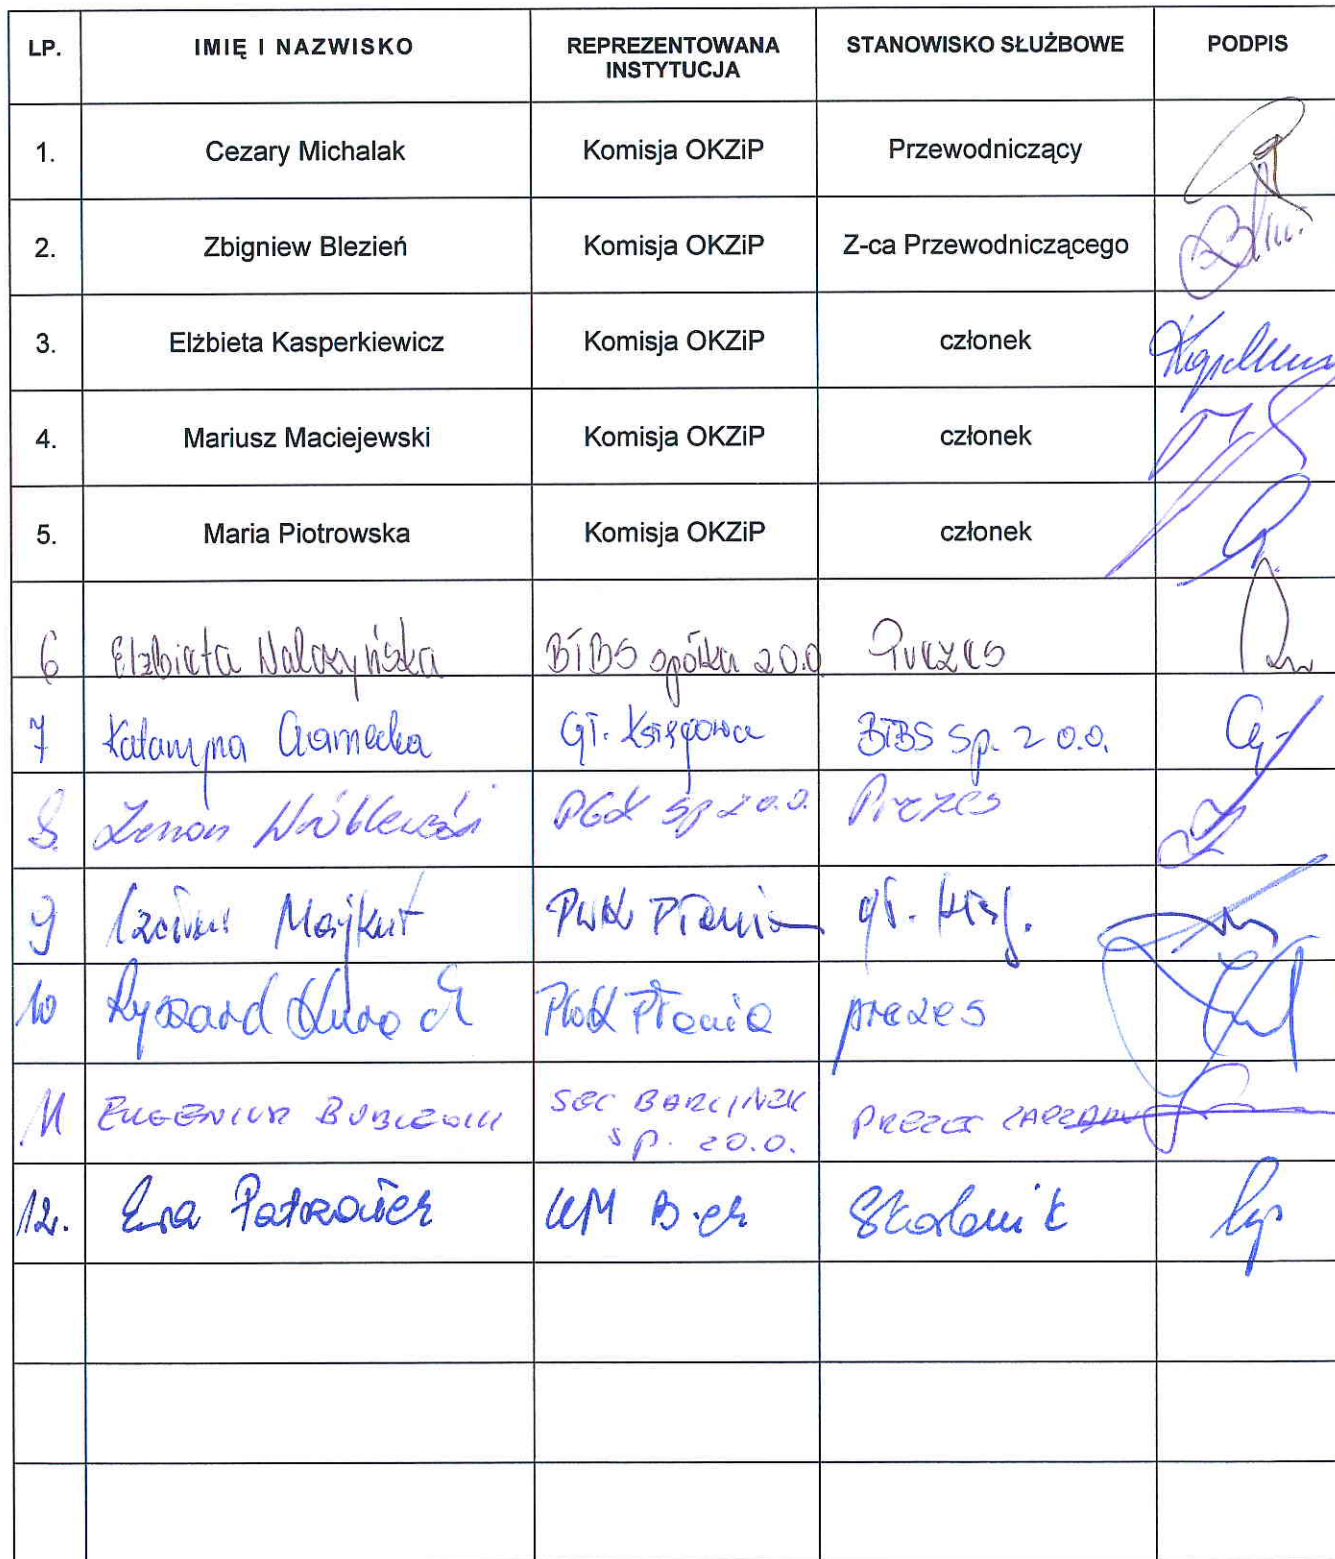 LP. IMIĘ I NAZWISKO REPREZENTOWANA INSTYTUCJA STANOWISKO SŁUŻBOWE PODPIS
1. Cezary Michalak Komisja OKZiP Przewodniczący
2. Zbigniew Blezień Komisja OKZiP Z-ca Przewodniczącego
3. Elżbieta Kasperkiewicz Komisja OKZiP członek
4. Mariusz Maciejewski Komisja OKZiP członek
5. Maria Piotrowska Komisja OKZiP członek
6 Elżbieta Walczyńska BTBS spółka z o.o Prezes
7 Katarzyna Czarnecka Gł. Księgowa BTBS Sp. z o.o.
8. Zenon Wróblewski PGK sp z o.o. Prezes
9 Majkut PWK Płonia gł. księg.
10 Ryszard PWiK Płonia prezes
11 EUGENIUSZ SEC BARLINEK sp. z o.o. PREZES ZARZĄDU
12. Ewa UM B-ek Skarbnik